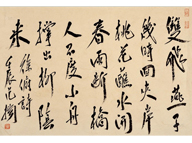 雙飛燕子
幾時回夾岸
桃花蘸水開
春雨斷橋
人不度小舟
撐出柳陰
來
徐俯詩